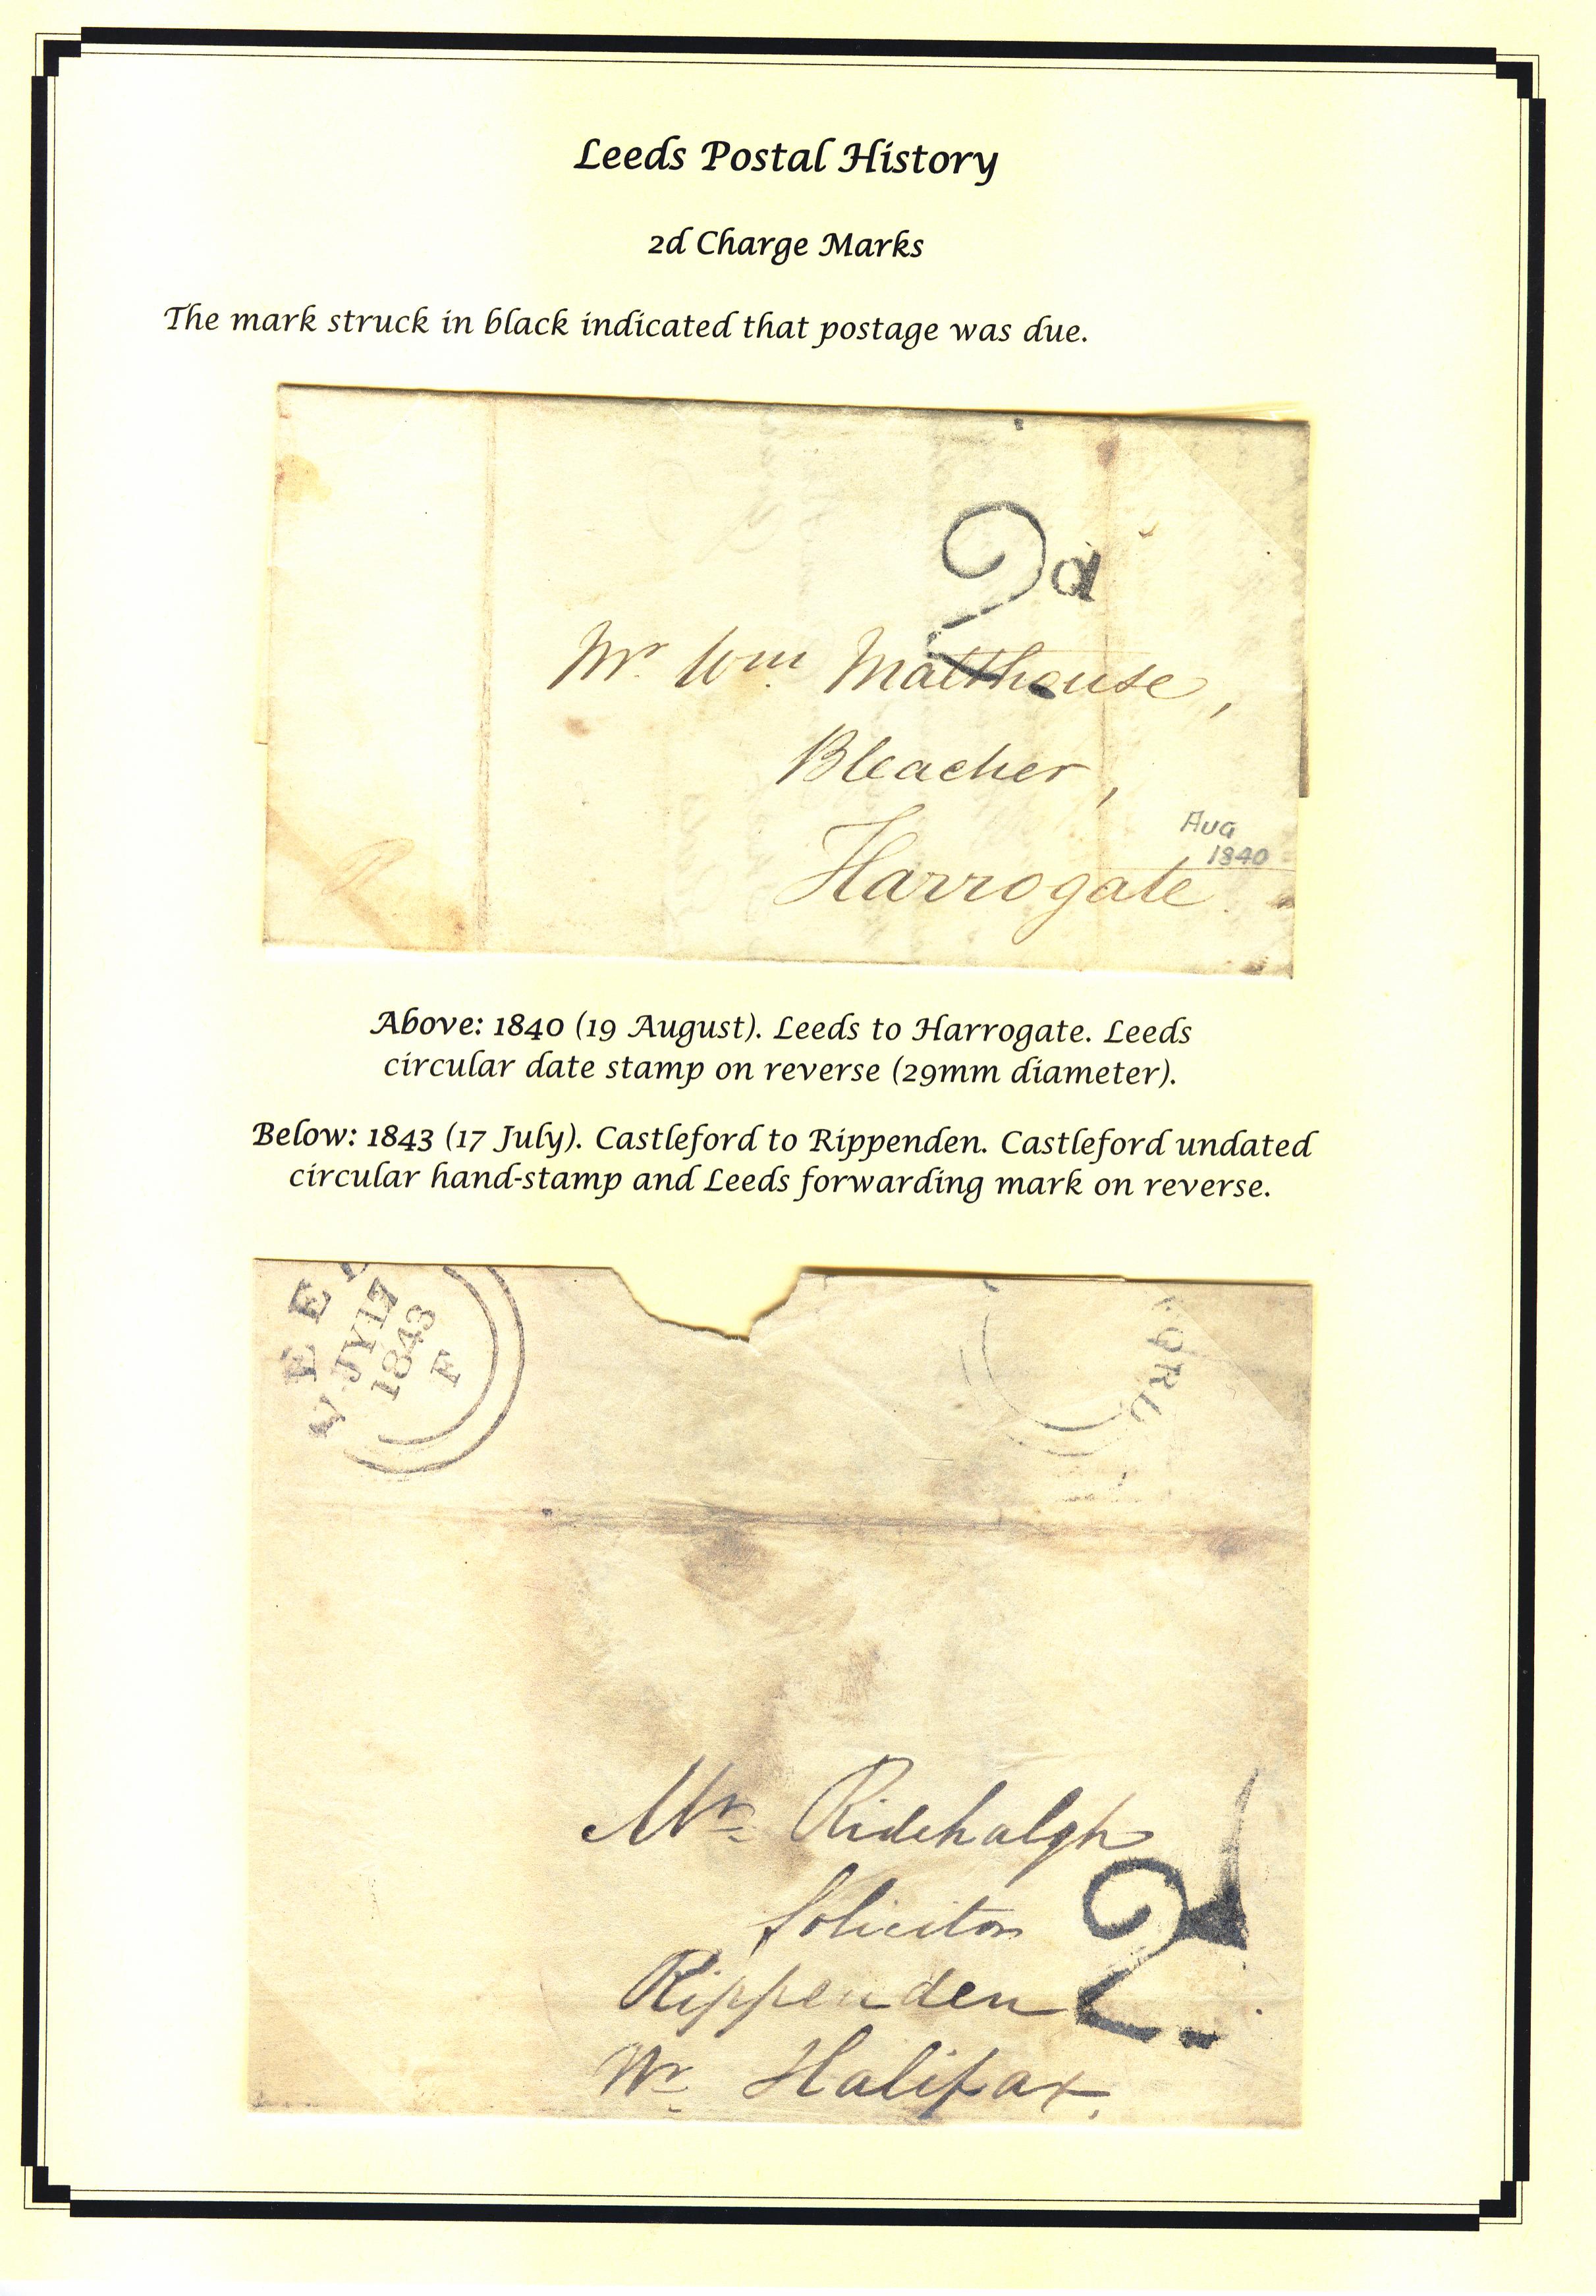 Leeds Postal History
2d Charge Marks
The mark struck in black indicated that postage was due.
2d
Mr. Wm. Malthouse,
Bleacher,
Aug
1840
Harrogate
Above: 1840 (19 August). Leeds to Harrogate. Leeds
circular date stamp on reverse (29mm diameter).
Below: 1843 (17 July). Castleford to Rippenden. Castleford undated
circular hand-stamp and Leeds forwarding mark on reverse.
LEE
JY 17
1843
F
ORD
Mr. Ridehalgh
Solicitor
2d
Rippenden
Nr. Halifax.